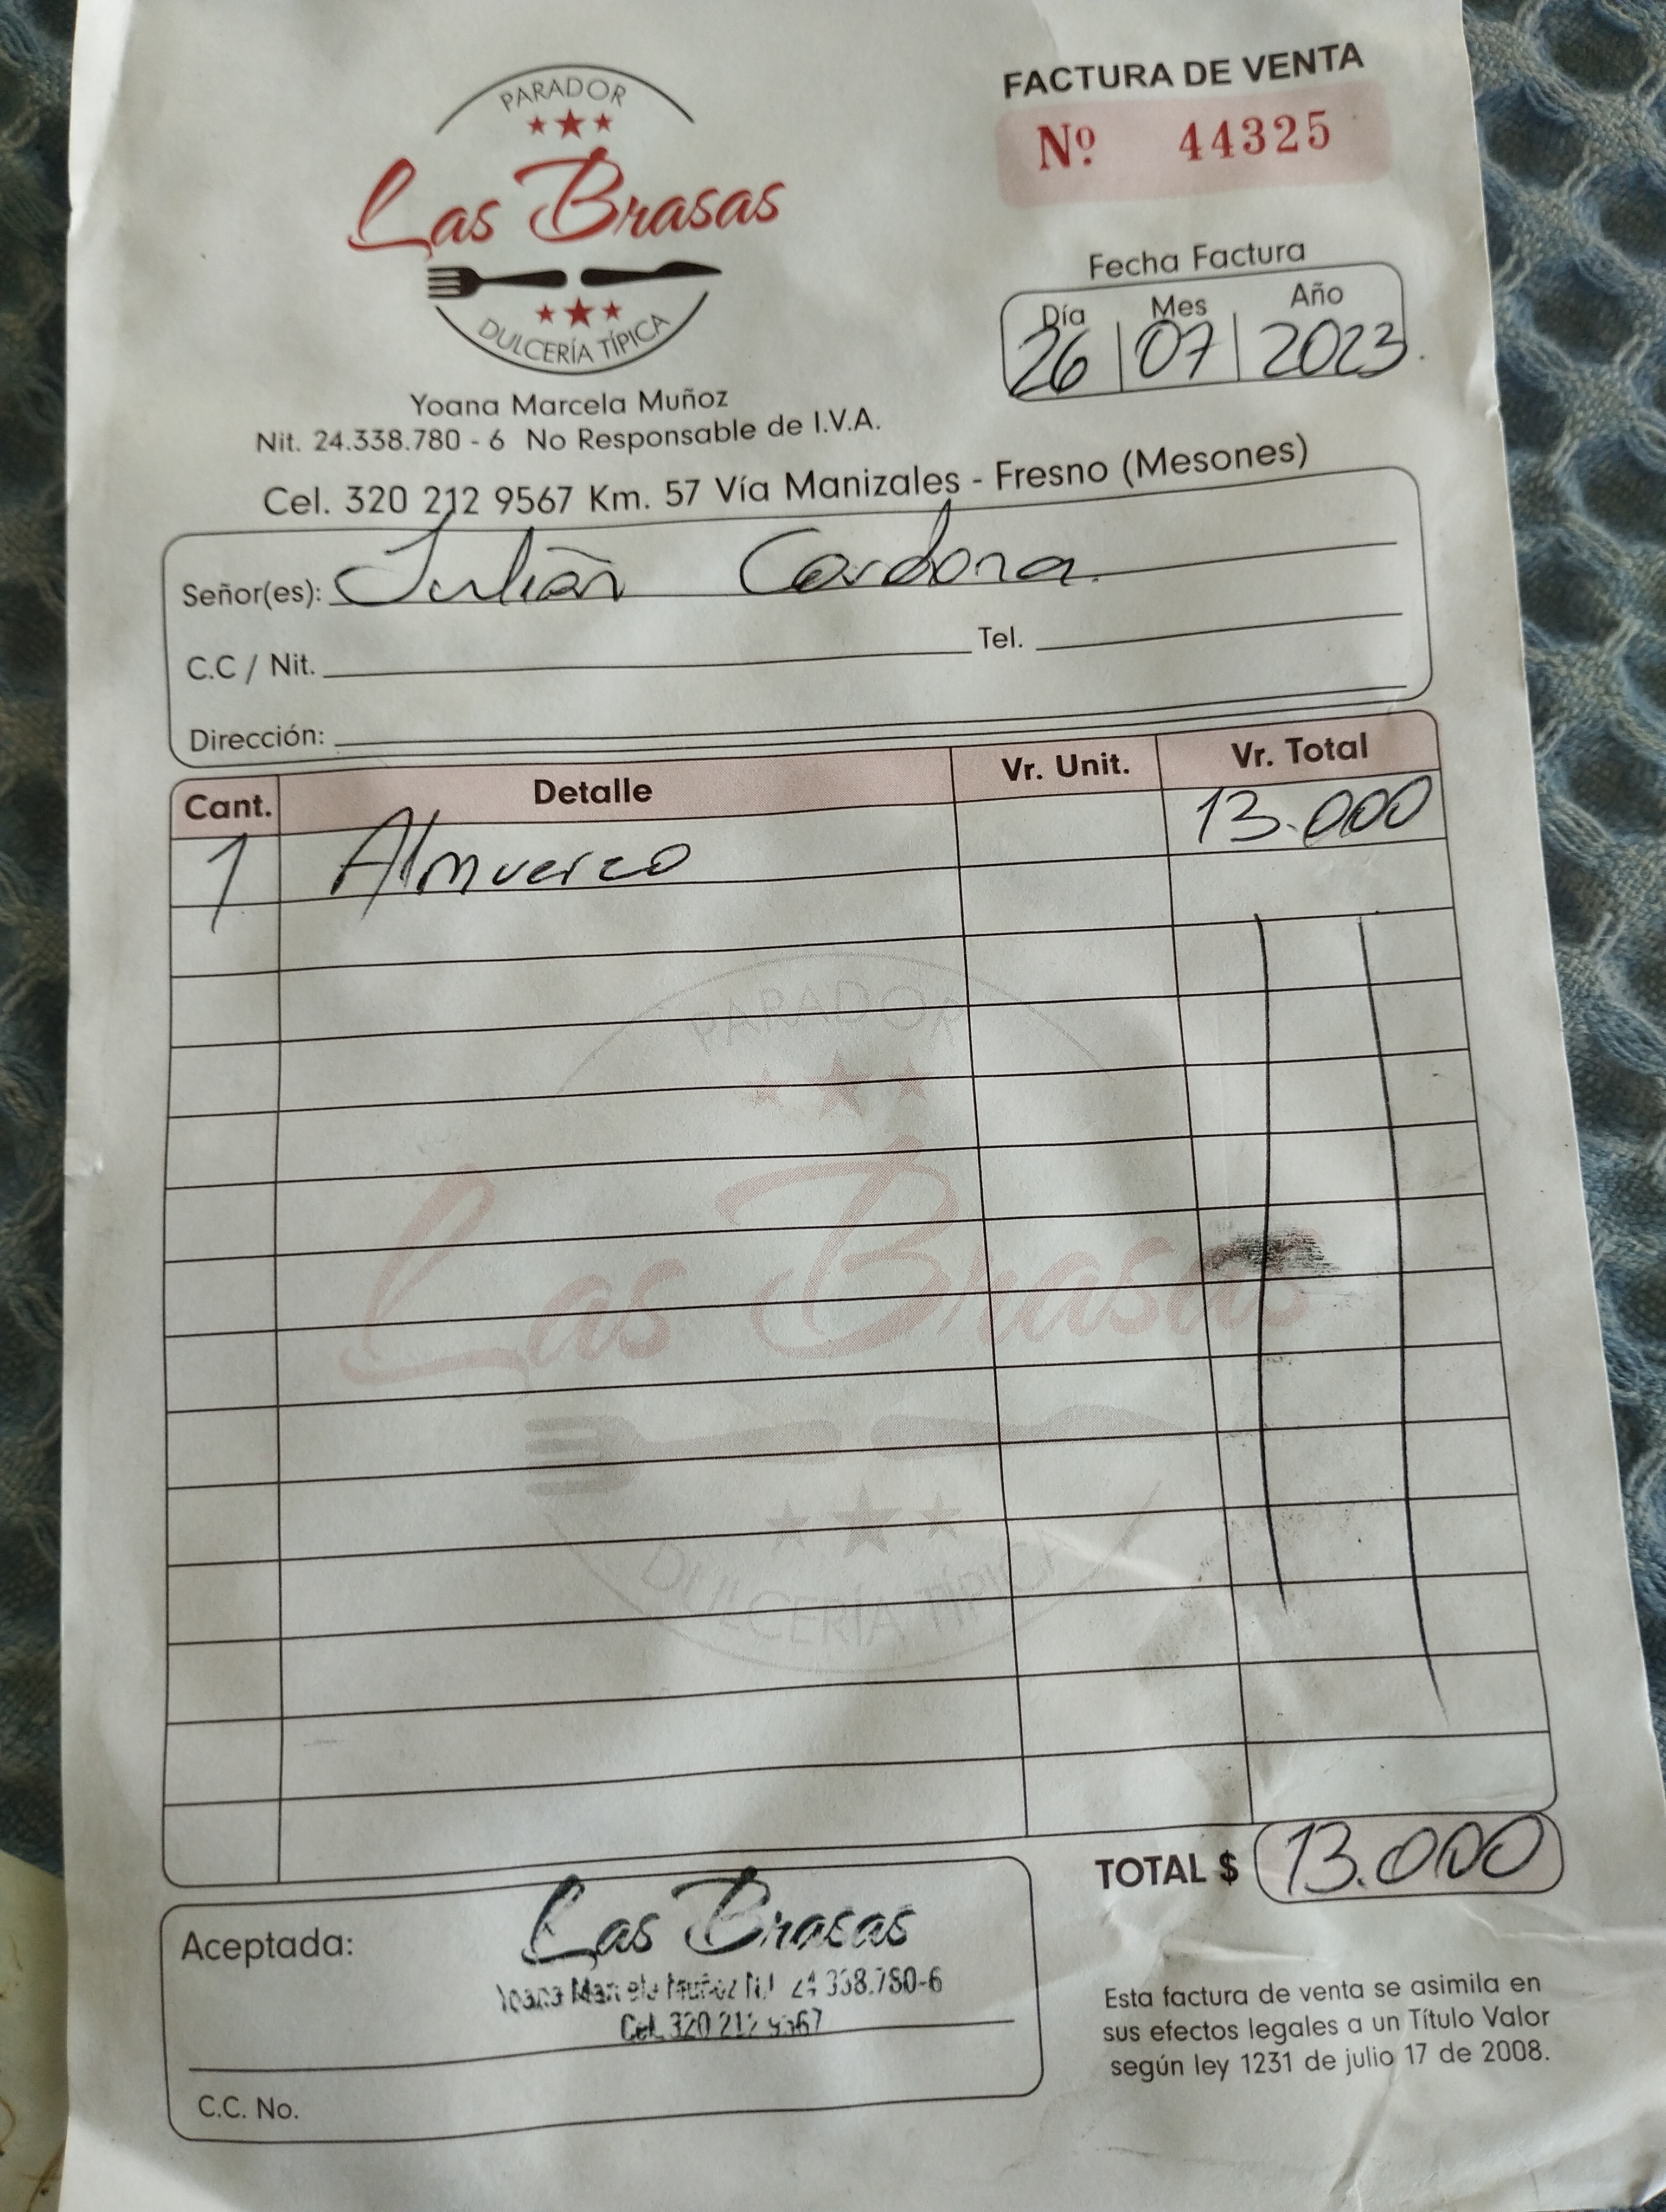 PARADOR
Las Brasas
DULCERÍA TÍPICA
Yoana Marcela Muñoz
Nit. 24.338.780 - 6 No Responsable de I.V.A.
Cel. 320 212 9567 Km. 57 Vía Manizales - Fresno (Mesones)
FACTURA DE VENTA
Nº 44325
Fecha Factura
Día Mes Año
26 07 2023
Señor(es): Julián Cardona
C.C / Nit. Tel.
Dirección:
Cant. Detalle Vr. Unit. Vr. Total
1 Almuerzo 13.000
PARADOR
Las Brasas
DULCERÍA TÍPICA
TOTAL $ 13.000
Aceptada:
Las Brasas
Yoana Marcela Muñoz Nit 24.338.780-6
Cel. 320 212 9567
C.C. No.
Esta factura de venta se asimila en
sus efectos legales a un Título Valor
según ley 1231 de julio 17 de 2008.